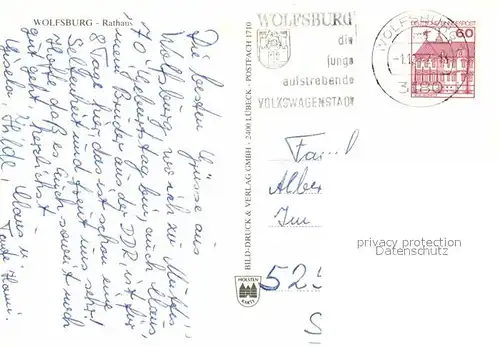 WOLFSBURG - Rathaus
Die besten Grüsse aus
Wolfsburg, wo ich zu Mutti's
70. Geburtstag bin, auch Klaus,
mein Bruder aus der DDR ist für
8 Tage hier, das ist schon eine
Seltenheit und freut uns sehr!
Hoffe, daß es Euch soweit noch
gut geht, herzlichst
Gisela, Hilde, Klaus u.
Tante Hanni.
BILD-DRUCK & VERLAG GMBH · 2400 LÜBECK · POSTFACH 1710
HOLSTEN KARTE
WOLFSBURG
die
junge
aufstrebende
VOLKSWAGENSTADT
WOLFSBURG
3180
DEUTSCHE BUNDESPOST
60
Fam
Alber
Im
525
S
privacy protection
VEREINIGTE Ansichtskarten